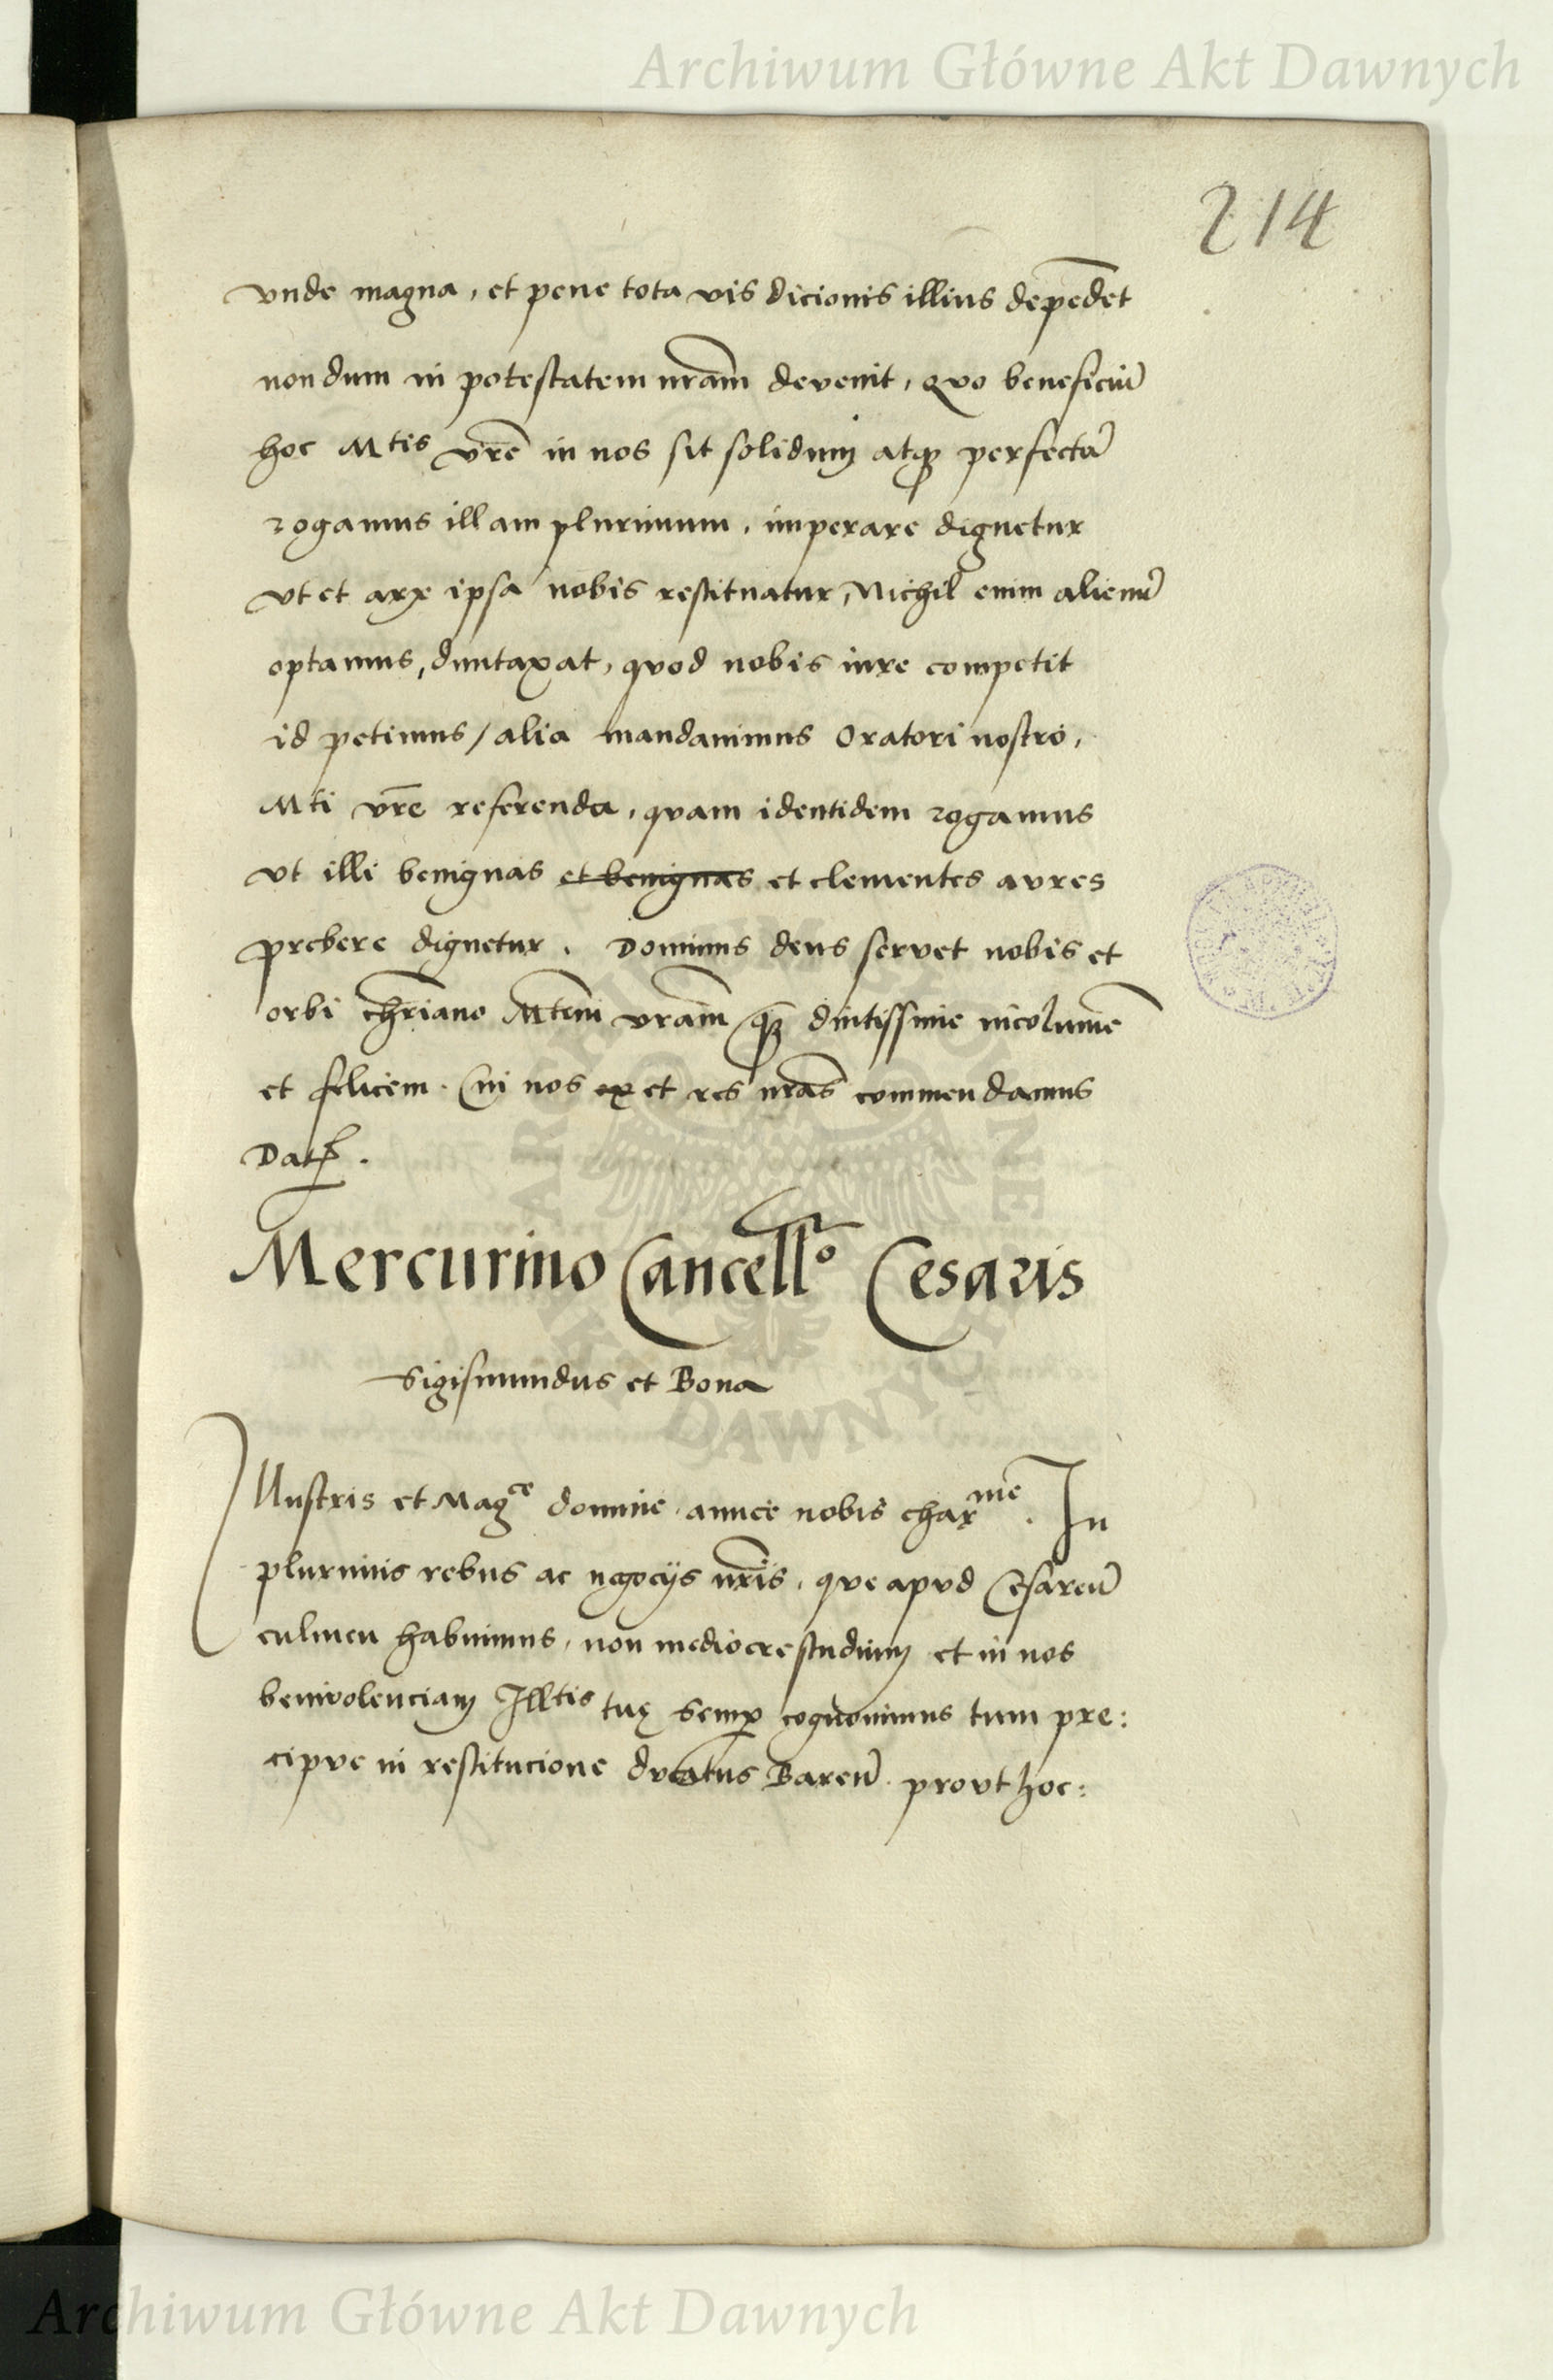 Archiwum Główne Akt Dawnych
214
vnde magna, et pene tota vis dicionis illius depēdet
nondum in potestatem nr̄am devenit, qvo beneficiū
hoc Mtis vr̄e in nos sit solidum atqꝫ perfectū
rogamus illam plurimum, imperare dignetur
vt et arx ipsa nobis restituatur, Nichil enim alienū
optamus, duntaxat, qvod nobis iure competit
id petimus / alia mandauimus Oratori nostro,
Mti vr̄e referenda, qvam identidem rogamus
vt illi benignas et benignas et clementes avres
prebere dignetur. Dominus deus servet nobis et
orbi chr̄iano Mtem vr̄am qꝫ diutissime incolumē
et felicem. Cui nos ex et res nr̄as commendamus
Datꝭ.
Mercurino Cancell̄o Cesaris
Sigismundus et Bona
Illustris et Mag^ce domine amice nobis char^me. In
plurimis rebus ac negocijs nr̄is, qve apvd Cesareū
culmen habuimus, non mediocre studium et in nos
benivolenciam Illtis tuę semꝑ cognovimus tum pre:
cipve in restitucione dvcatus Bareñ. provt hoc:
ARCHIWUM GŁÓWNE AKT DAWNYCH
Archiwum Główne Akt Dawnych